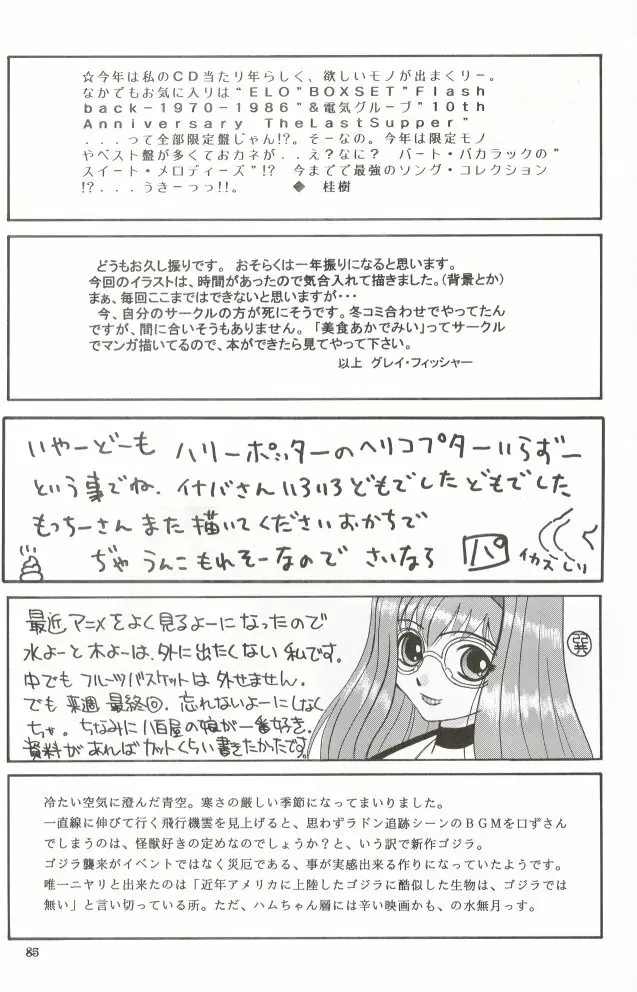 ☆今年は私のCD当たり年らしく、欲しいモノが出まくりー。
なかでもお気に入りは"ELO"BOXSET"Flash
back-1970-1986"&電気グループ"10th
Anniversary TheLastSupper"
...って全部限定盤じゃん!?。そーなの。今年は限定モノ
やベスト盤が多くておカネが..え?なに? バート・バカラックの"
スイート・メロディーズ"!? 今までで最強のソング・コレクション
!?...うきーっっ!!。 ◆ 桂樹
どうもお久し振りです。おそらくは一年振りになると思います。
今回のイラストは、時間があったので気合入れて描きました。(背景とか)
まぁ、毎回ここまではできないと思いますが・・・
今、自分のサークルの方が死にそうです。冬コミ合わせでやってたん
ですが、間に合いそうもありません。「美食あかでみい」ってサークル
でマンガ描いてるので、本ができたら見てやって下さい。
以上 グレイ・フィッシャー
いやーどーも ハリーポッターのヘリコプターいらずー
という事でね、イナバさんいろいろどもでしたどもでした
もっちーさんまた描いてくださいおかちで
ぢゃうんこもれそーなので さいなら パ イカズしり
最近アニメをよく見るよーになったので
水よーと木よーは、外に出たくない私です。
中でもフルーツバスケットは外せません。
でも来週最終回。忘れないよーにしなく
ちゃ。ちなみに八百屋の娘が一番好き。
資料があればカットくらい書きたかったです。
冷たい空気に澄んだ青空。寒さの厳しい季節になってまいりました。
一直線に伸びて行く飛行機雲を見上げると、思わずラドン追跡シーンのBGMを口ずさん
でしまうのは、怪獣好きの定めなのでしょうか?と、いう訳で新作ゴジラ。
ゴジラ襲来がイベントではなく災厄である、事が実感出来る作りになっていたようです。
唯一ニヤリと出来たのは「近年アメリカに上陸したゴジラに酷似した生物は、ゴジラでは
無い」と言い切っている所。ただ、ハムちゃん層には辛い映画かも、の水無月っす。
85